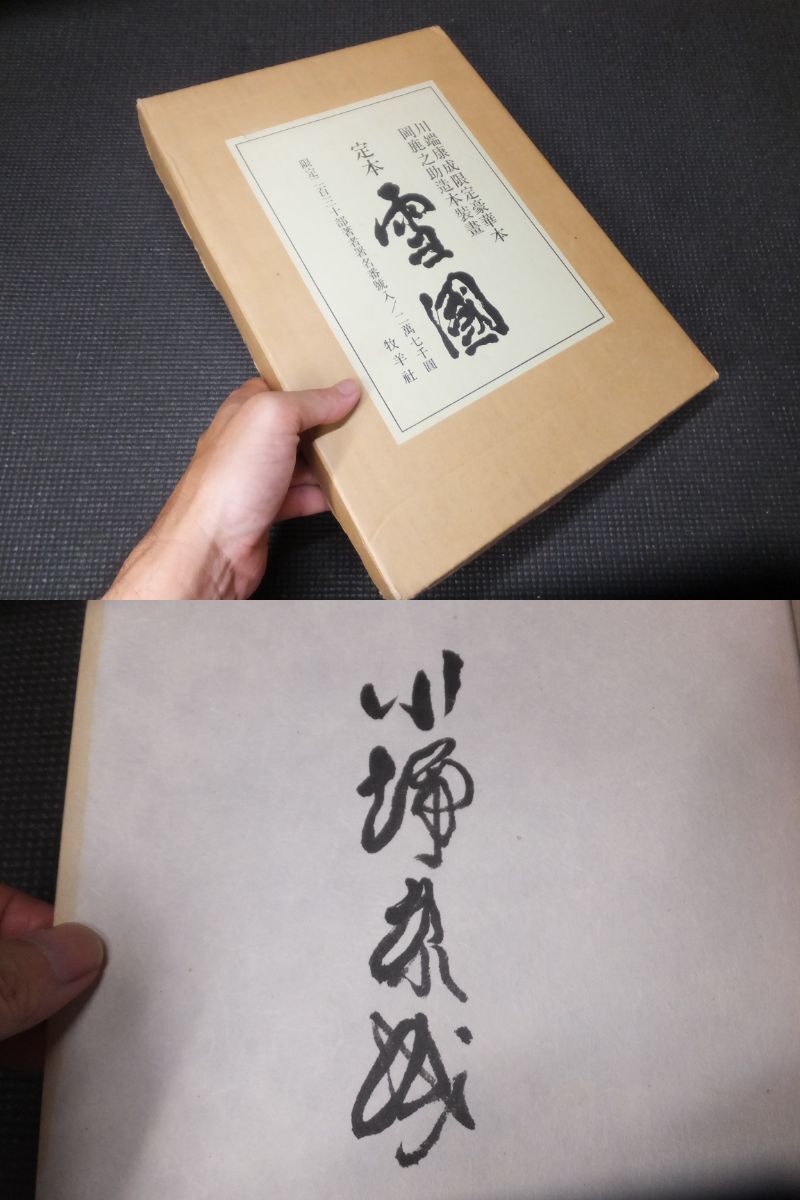 川端康成限定豪華本
岡鹿之助造本装畫
定本
雪國
限定二百三十部著者署名番號入／二萬七千圓
牧羊社
川端康成